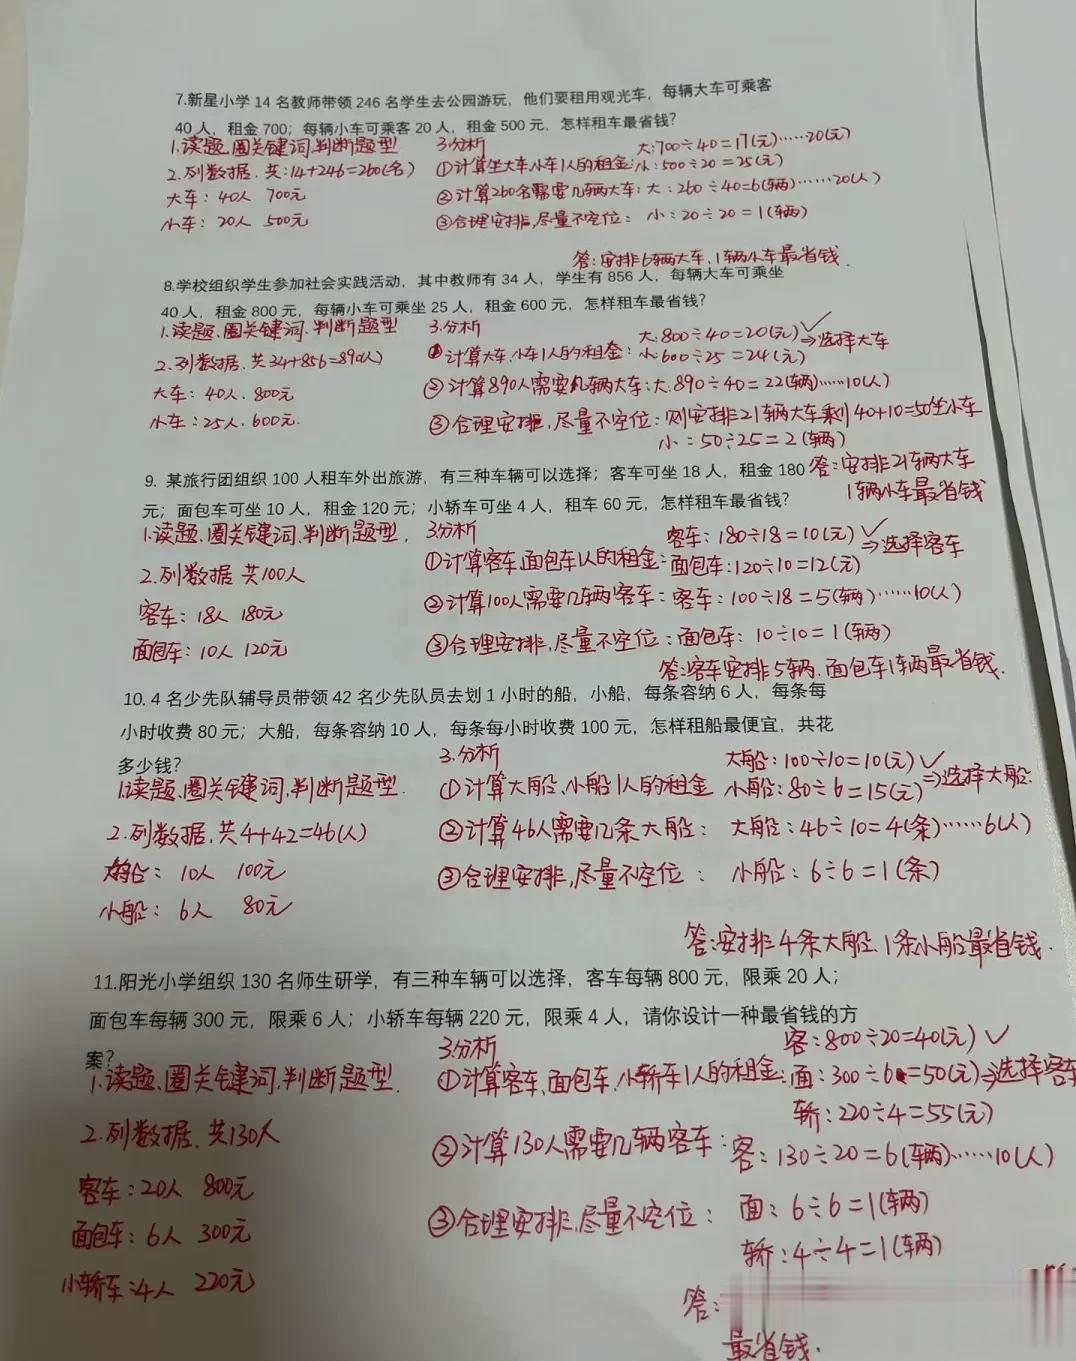 7.新星小学 14 名教师带领 246 名学生去公园游玩，他们要租用观光车，每辆大车可乘客
40 人，租金 700；每辆小车可乘客 20 人，租金 500 元，怎样租车最省钱？
1.读题、圈关键词、判断题型
2.列数据. 共:14+246=260(名)
大车：40人 700元
小车：20人 500元
3.分析
①计算坐大车小车1人的租金:
大:700÷40=17(元)……20(元)
小:500÷20=25(元)
②计算260名需要几辆大车：大：260÷40=6(辆)……20(人)
③合理安排,尽量不空位：小：20÷20=1(辆)
答：安排6辆大车、1辆小车最省钱.
8.学校组织学生参加社会实践活动，其中教师有 34 人，学生有 856 人，每辆大车可乘坐
40 人，租金 800 元，每辆小车可乘坐 25 人，租金 600 元，怎样租车最省钱？
1.读题、圈关键词、判断题型
2.列数据.共34+856=890(人)
大车：40人.800元
小车:25人.600元.
3.分析
①计算大车、小车1人的租金：
大:800÷40=20(元)✓
小:600÷25=24(元)
⇒选择大车
②计算890人需要几辆大车:大:890÷40=22(辆)……10(人)
③合理安排,尽量不空位：则安排21辆大车剩40+10=50坐小车
小：50÷25=2(辆)
答：安排21辆大车
1辆小车最省钱
9. 某旅行团组织 100 人租车外出旅游，有三种车辆可以选择；客车可坐 18 人，租金 180
元；面包车可坐 10 人，租金 120 元；小轿车可坐 4 人，租车 60 元，怎样租车最省钱？
1.读题、圈关键词、判断题型，
2.列数据 共100人
客车：18人 180元
面包车：10人 120元
3分析
①计算客车,面包车人的租金:
客车：180÷18=10(元)✓
面包车:120÷10=12(元)
⇒选择客车
②计算100人需要几辆客车：客车：100÷18=5(辆)……10(人)
③合理安排,尽量不空位：面包车：10÷10=1(辆)
答:客车安排5辆.面包车1辆最省钱.
10. 4 名少先队辅导员带领 42 名少先队员去划 1 小时的船，小船，每条容纳 6 人，每条每
小时收费 80 元；大船，每条容纳 10 人，每条每小时收费 100 元，怎样租船最便宜，共花
多少钱？
1.读题、圈关键词.判断题型.
2.列数据.共4+42=46(人)
大船：10人 100元
小船：6人 80元
3.分析
①计算大船、小船1人的租金
大船：100÷10=10(元)✓
小船：80÷6=15(元)
⇒选择大船.
②计算46人需要几条大船： 大船：46÷10=4(条)……6(人)
③合理安排,尽量不空位： 小船：6÷6=1(条)
答:安排4条大船、1条小船最省钱.
11.阳光小学组织 130 名师生研学，有三种车辆可以选择，客车每辆 800 元，限乘 20 人；
面包车每辆 300 元，限乘 6 人；小轿车每辆 220 元，限乘 4 人，请你设计一种最省钱的方
案？
1.读题、圈关键词,判断题型.
2.列数据.共130人
客车:20人 800元
面包车：6人 300元
小轿车:4人 220元
3.分析
①计算客车、面包车、小轿车1人的租金:
客：800÷20=40(元)✓
面：300÷6=50(元)⇒选择客车
轿：220÷4=55(元)
②计算130人需要几辆客车：客：130÷20=6(辆)……10(人)
③合理安排,尽量不空位： 面：6÷6=1(辆)
轿:4÷4=1(辆)
答：
最省钱.